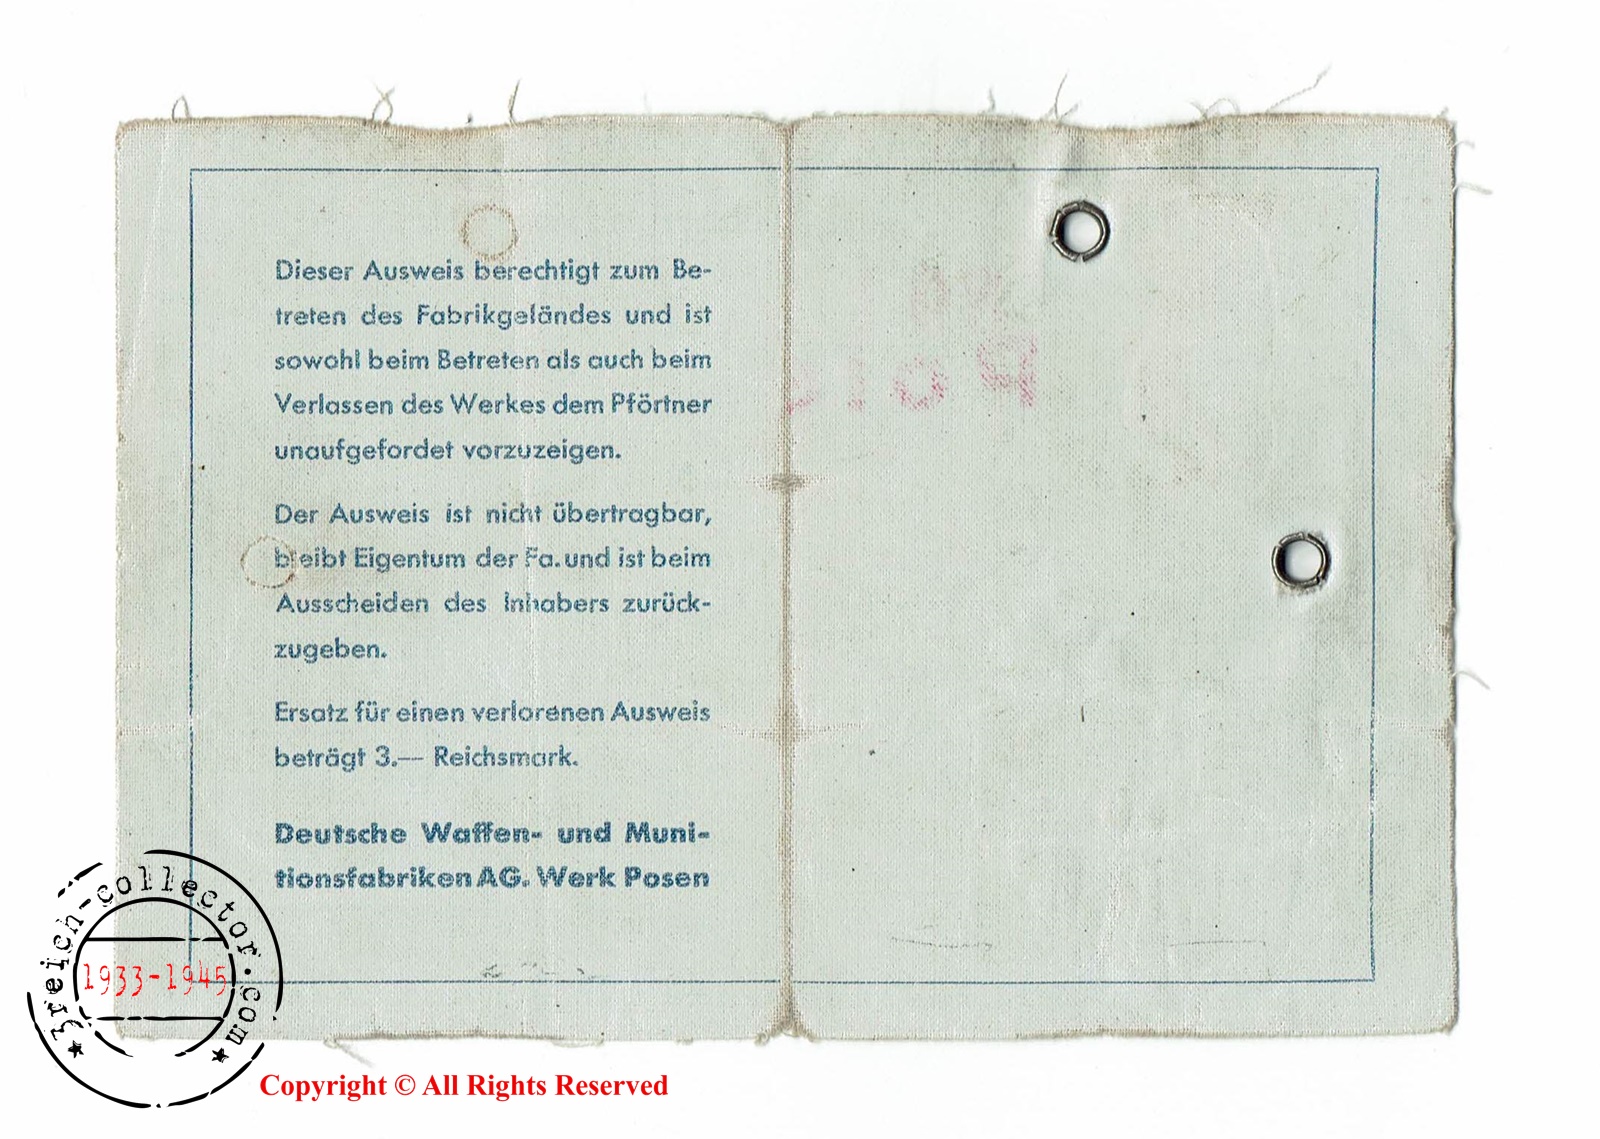 Dieser Ausweis berechtigt zum Be-
treten des Fabrikgeländes und ist
sowohl beim Betreten als auch beim
Verlassen des Werkes dem Pförtner
unaufgefordet vorzuzeigen.
Der Ausweis ist nicht übertragbar,
bleibt Eigentum der Fa. und ist beim
Ausscheiden des Inhabers zurück-
zugeben.
Ersatz für einen verlorenen Ausweis
beträgt 3.— Reichsmark.
Deutsche Waffen- und Muni-
tionsfabriken AG. Werk Posen
3reich-collector.com
1933-1945
Copyright © All Rights Reserved